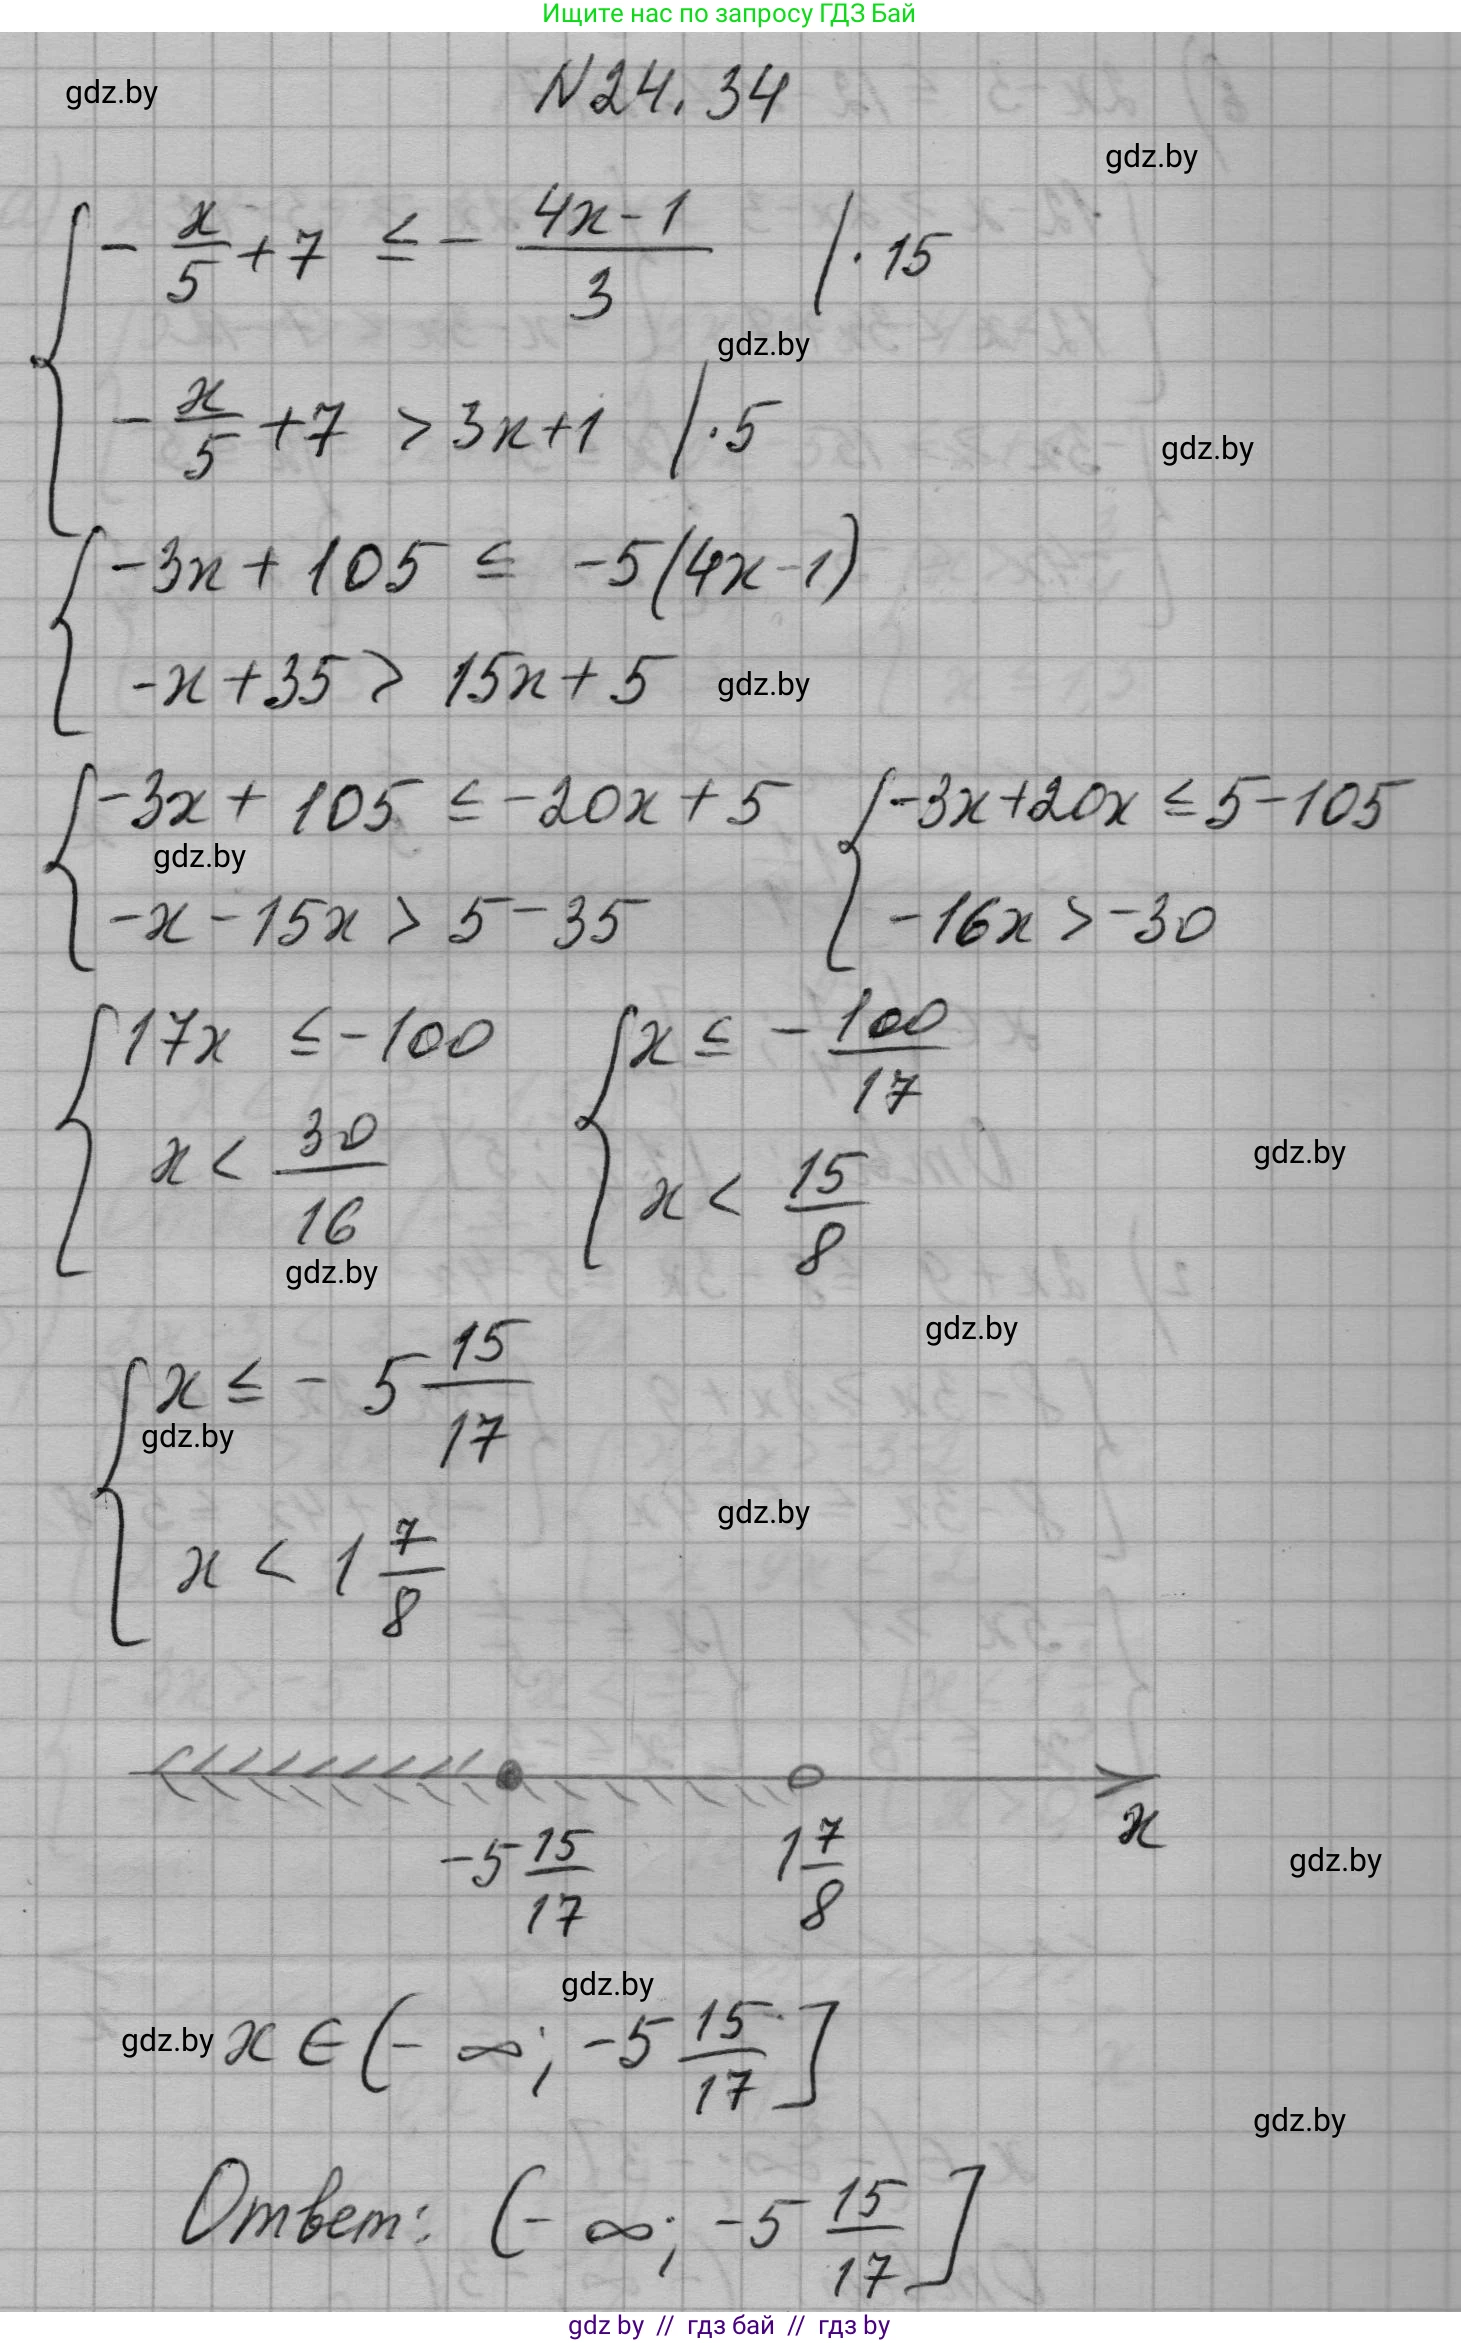 Ищите нас по запросу ГДЗ Бай
gdz.by
N24.34
gdz.by
{ - x/5 + 7 ≤ - (4x-1)/3 | · 15
gdz.by
- x/5 + 7 > 3x+1 | · 5
gdz.by
{ -3x + 105 ≤ -5(4x-1)
-x + 35 > 15x + 5
gdz.by
{ -3x + 105 ≤ -20x + 5 { -3x+20x ≤ 5-105
gdz.by
-x - 15x > 5 - 35 -16x > -30
{ 17x ≤ -100 { x ≤ - 100/17
x < 30/16 x < 15/8
gdz.by
gdz.by
gdz.by
{ x ≤ - 5 15/17
gdz.by
gdz.by
x < 1 7/8
x
-5 15/17 1 7/8
gdz.by
gdz.by
gdz.by
x ∈ (- ∞; -5 15/17 ]
gdz.by
Ответ: (- ∞; -5 15/17 ]
gdz by // гдз бай // гдз by